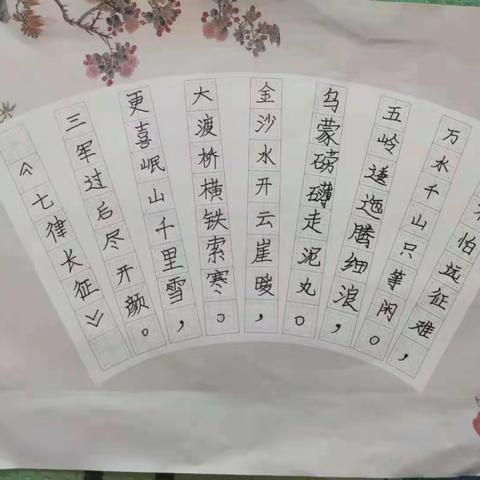 怕远征难，
万水千山只等闲。
五岭逶迤腾细浪，
乌蒙磅礴走泥丸。
金沙水开云崖暖，
大渡桥横铁索寒。
更喜岷山千里雪，
三军过后尽开颜。
《七律长征》